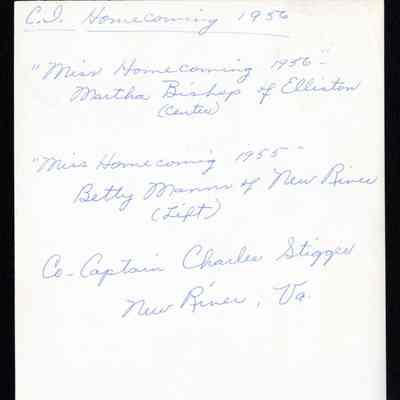 C.I. Homecoming 1956
"Miss Homecoming 1956"
Martha Bishop of Elliston
(Center)
"Miss Homecoming 1955"
Betty Manns of New River
(Left)
Co-Captain Charles Stigger
New River, Va.